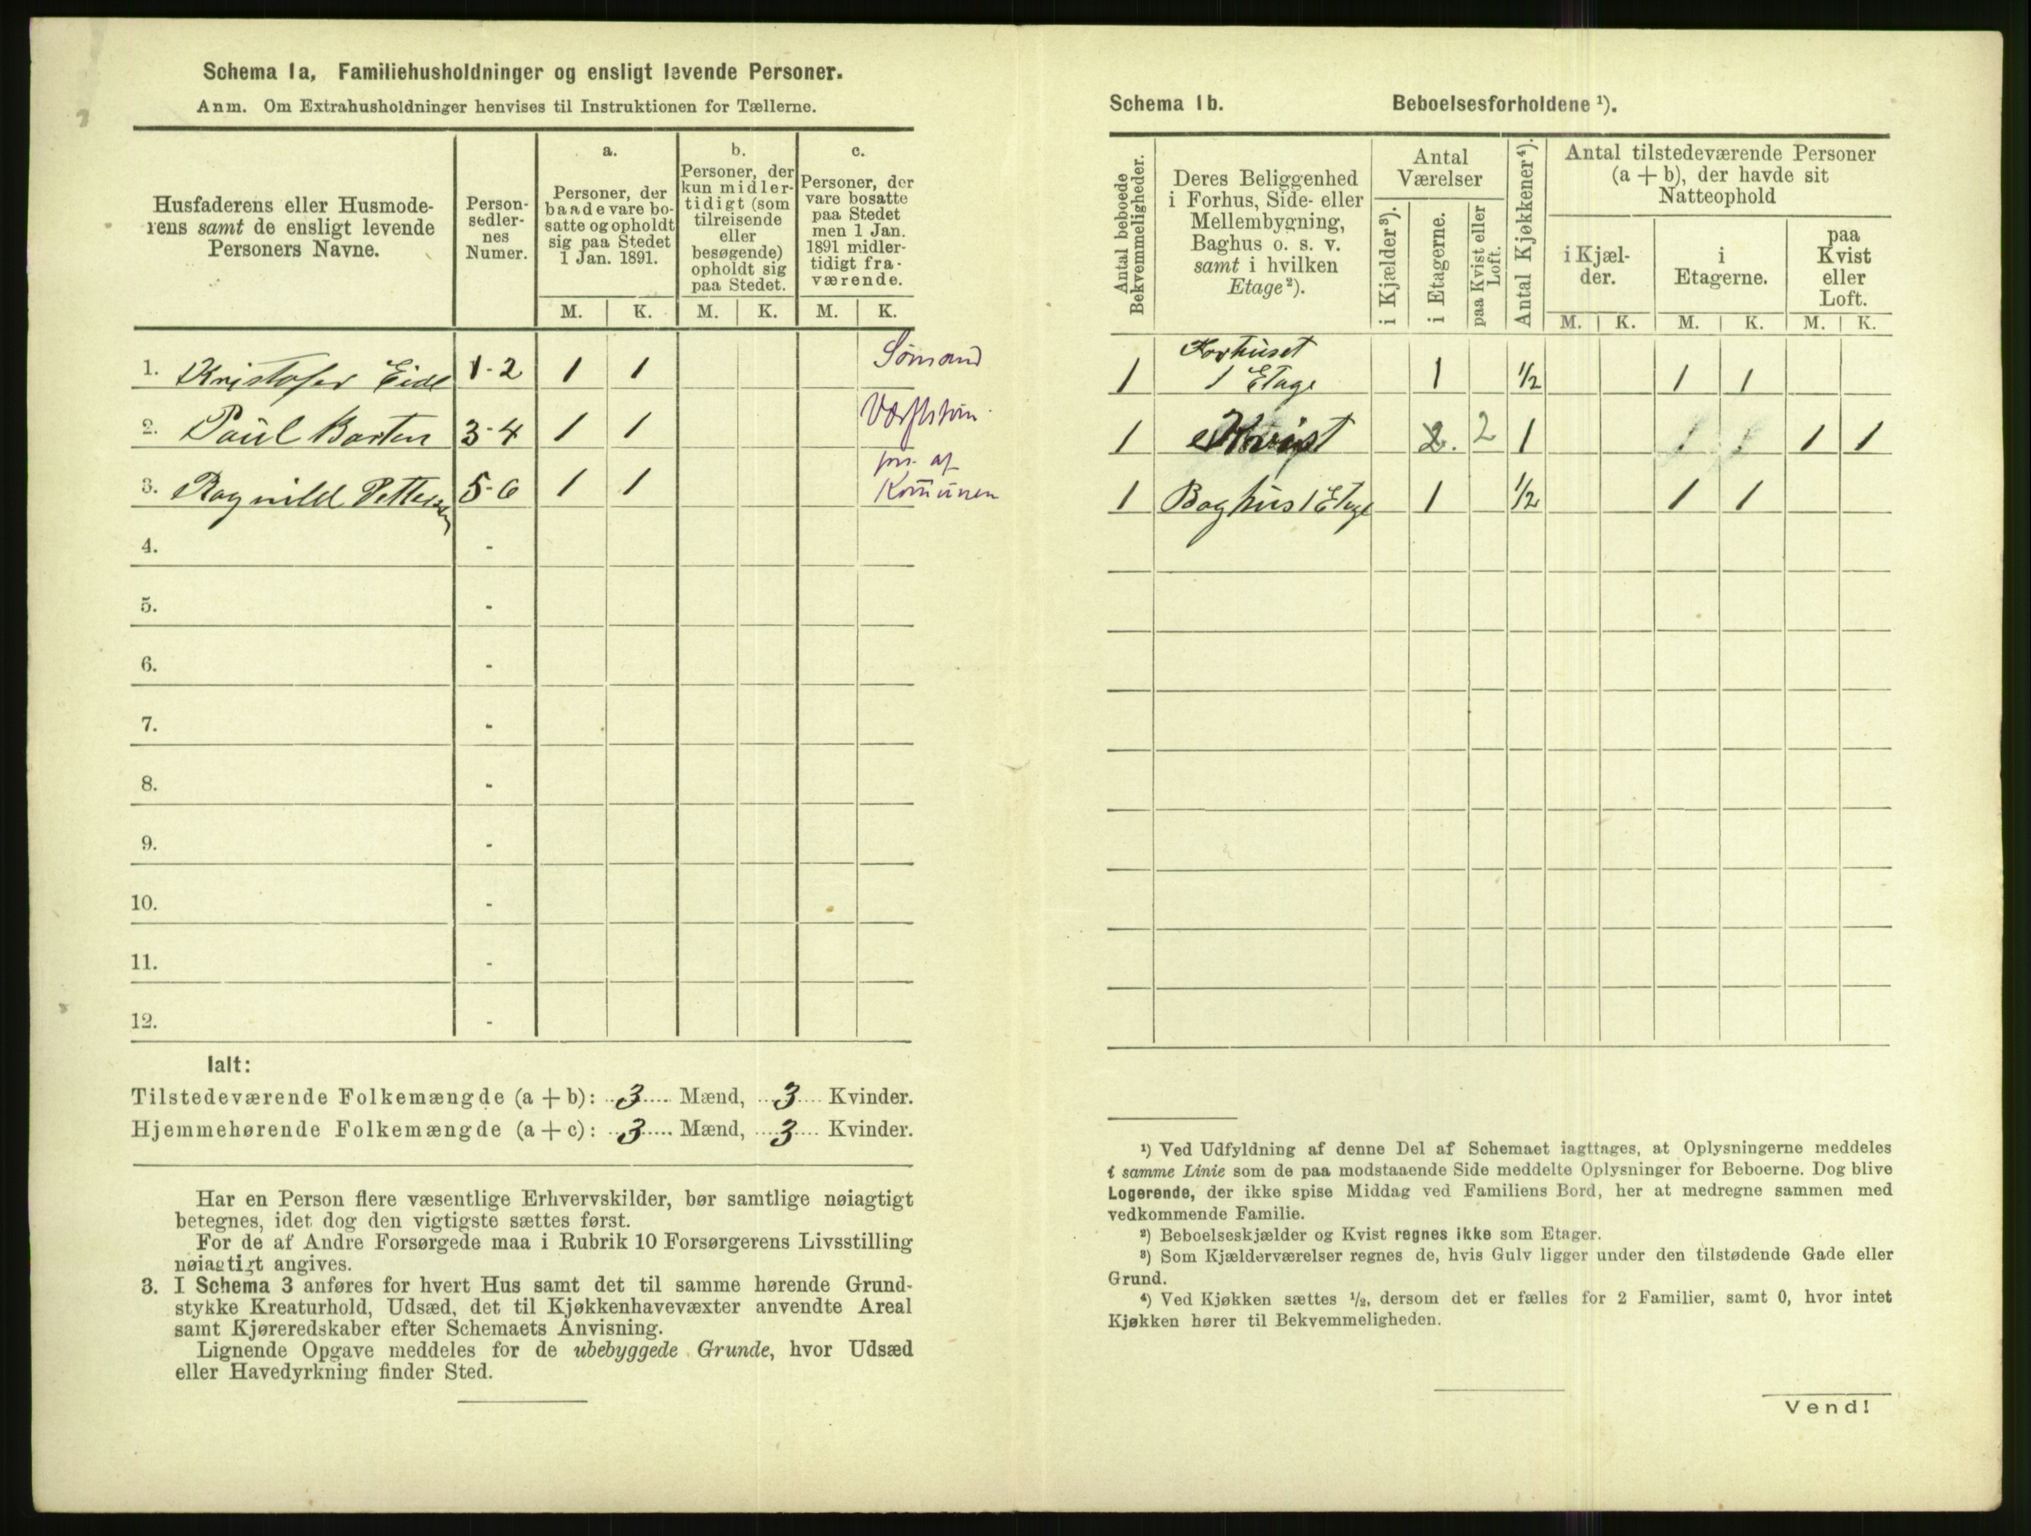 Schema 1a, Familiehusholdninger og ensligt levende Personer.
Anm. Om Extrahusholdninger henvises til Instruktionen for Tællerne.
Husfaderens eller Husmode-
rens samt de ensligt levende
Personers Navne.
Person-
sedler-
nes
Numer.
a.
Personer, der
baade vare bo-
satte og opholdt
sig paa Stedet
1 Jan. 1891.
b.
Personer, der
kun midler-
tidigt (som
tilreisende
eller
besøgende)
opholdt sig
paa Stedet.
c.
Personer, der
vare bosatte
paa Stedet
men 1 Jan.
1891 midler-
tidigt fra-
værende.
M. K. M. K. M. K.
1. Kristofer Eide 1-2 1 1 Sømand
2. Paul Barten 3-4 1 1
3. Ragnild Pettersen 5-6 1 1 fors. af Komunen
4. -
5. -
6. -
7. -
8. -
9. -
10. -
11. -
12. -
Ialt:
Tilstedeværende Folkemængde (a + b): 3 Mænd, 3 Kvinder.
Hjemmehørende Folkemængde (a + c): 3 Mænd, 3 Kvinder.
Har en Person flere væsentlige Erhvervskilder, bør samtlige nøiagtigt
betegnes, idet dog den vigtigste sættes først.
For de af Andre Forsørgede maa i Rubrik 10 Forsørgerens Livsstilling
nøiagtigt angives.
3. I Schema 3 anføres for hvert Hus samt det til samme hørende Grund-
stykke Kreaturhold, Udsæd, det til Kjøkkenhavevæxter anvendte Areal
samt Kjøreredskaber efter Schemaets Anvisning.
Lignende Opgave meddeles for de ubebyggede Grunde, hvor Udsæd
eller Havedyrkning finder Sted.
Schema 1b. Beboelsesforholdene ¹).
Antal beboede
Bekvemmeligheder.
Deres Beliggenhed
i Forhus, Side- eller
Mellembygning,
Baghus o. s. v.
samt i hvilken
Etage²).
Antal
Værelser
i Kjælder³).
i Etagerne.
paa Kvist eller
Loft.
Antal Kjøkkener⁴).
Antal tilstedeværende Personer
(a + b), der havde sit
Natteophold
i Kjæl-
der.
i
Etagerne.
paa
Kvist
eller
Loft.
M. K. M. K. M. K.
1 Forhuset 1 Etage 1 1/2 1 1
1 Kvist 2. 2 1 1 1 1 1
1 Baghus 1 Etage 1 1/2 1 1
¹) Ved Udfyldning af denne Del af Schemaet iagttages, at Oplysningerne meddeles
i samme Linie som de paa modstaaende Side meddelte Oplysninger for Beboerne. Dog blive
Logerende, der ikke spise Middag ved Familiens Bord, her at medregne sammen med
vedkommende Familie.
²) Beboelseskjælder og Kvist regnes ikke som Etager.
³) Som Kjælderværelser regnes de, hvis Gulv ligger under den tilstødende Gade eller
Grund.
⁴) Ved Kjøkken sættes ½, dersom det er fælles for 2 Familier, samt 0, hvor intet
Kjøkken hører til Bekvemmeligheden.
Vend!